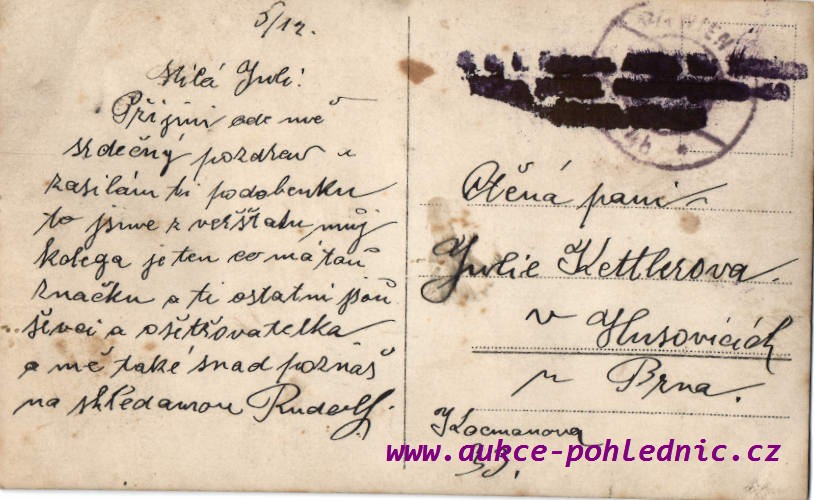 5/12.
Milá Juli!
Přijmi ode mě
srdečný pozdrav a
zasilám ti podobenku
to jsme z verštatu můj
kolega je ten co má tou
značku a ti ostatni jsou
ševci a ošetřovatelka
a mě také snad poznáš
na skledanou Rudolf.
WIEN
Ctěná pani
Julie Kettlerova.
v Husovicích
u Brna.
Kocmanova
35.
www.aukce-pohlednic.cz